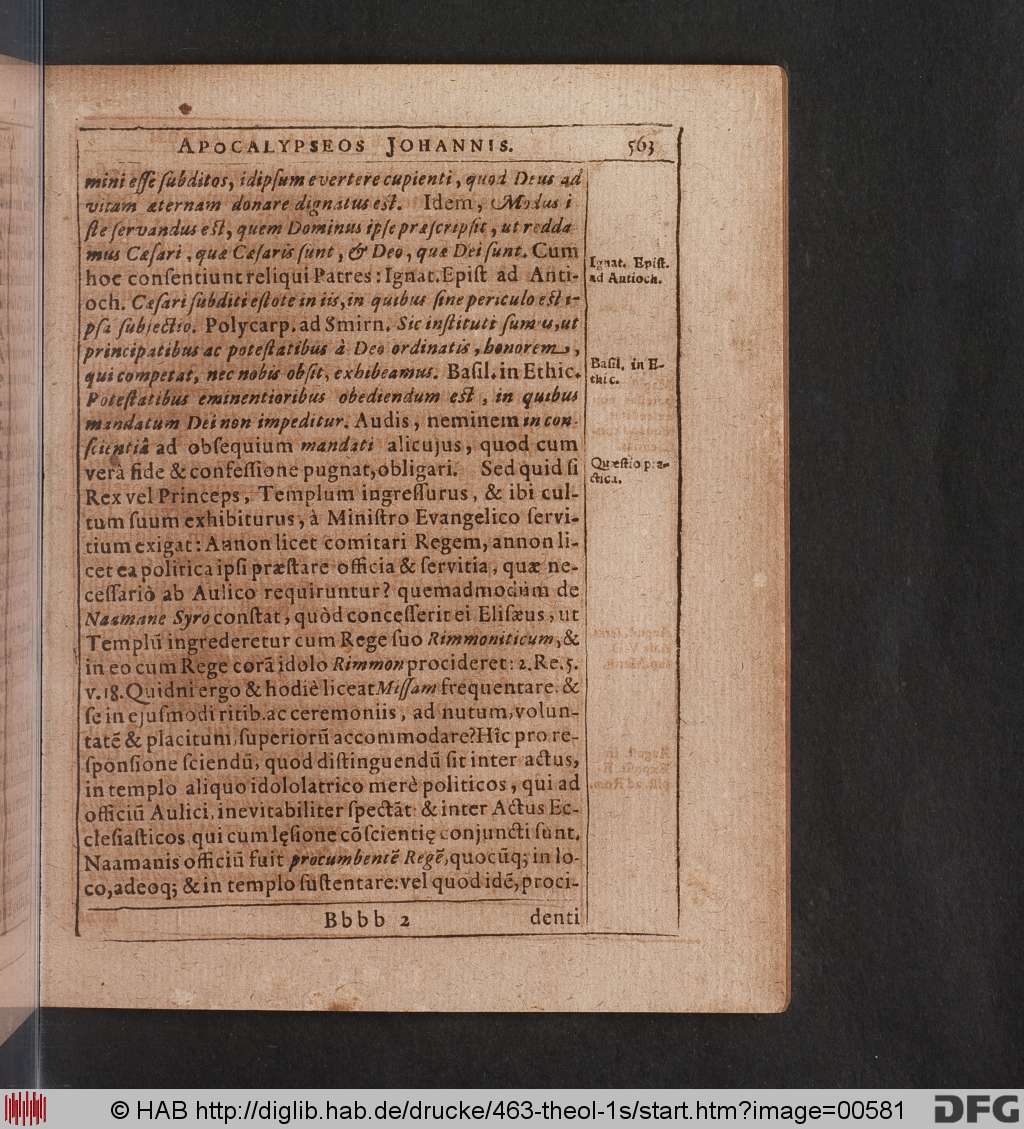 APOCALYPSEOS JOHANNIS. 563
mini eſſe ſubditos, idipſum evertere cupienti, quod Deus ad
vitam æternam donare dignatus eſt. Idem, Modus i
ſte ſervandus eſt, quem Dominus ipſe præſcripſit, ut redda
mus Cæſari, quæ Cæſaris ſunt, & Deo, quæ Dei ſunt. Cum
hoc conſentiunt reliqui Patres: Ignat. Epiſt ad Anti-
och. Cæſari ſubditi eſtote in iis, in quibus ſine periculo eſt i-
pſa ſubjectio. Polycarp. ad Smirn. Sic inſtituti ſumus, ut
principatibus ac poteſtatibus à Deo ordinatis, honorem,
qui competat, nec nobis obſit, exhibeamus. Baſil. in Ethic.
Poteſtatibus eminentioribus obediendum eſt, in quibus
mandatum Dei non impeditur. Audis, neminem in con-
ſcientiâ ad obſequium mandati alicujus, quod cum
verà fide & confeſſione pugnat, obligari. Sed quid ſi
Rex vel Princeps, Templum ingreſſurus, & ibi cul-
tum ſuum exhibiturus, à Miniſtro Evangelico ſervi-
tium exigat: Annon licet comitari Regem, annon li-
cet ea politica ipſi præſtare officia & ſervitia, quæ ne-
ceſſariò ab Aulico requiruntur? quemadmodum de
Naamane Syro conſtat, quòd conceſſerit ei Eliſæus, ut
Templũ ingrederetur cum Rege ſuo Rimmoniticum, &
in eo cum Rege corã idolo Rimmon procideret: 2. Re. 5.
v. 18. Quidni ergo & hodiè liceat Miſſam frequentare, &
ſe in ejuſmodi ritib. ac ceremoniis, ad nutum, volun-
tatẽ & placitum, ſuperiorũ accommodare? Hîc pro re-
ſponſione ſciendũ, quod diſtinguendũ ſit inter actus,
in templo aliquo idololatrico merè politicos, qui ad
officiũ Aulici, inevitabiliter ſpectãt: & inter Actus Ec-
cleſiaſticos qui cum lęſione cõſcientię conjuncti ſunt.
Naamanis officiũ fuit procumbentẽ Regẽ, quocũq; in lo-
co, adeoq; & in templo ſuſtentare: vel quod idẽ, proci-
Bbbb 2 denti
Ignat. Epiſt.
ad Antioch.
Baſil. in E-
thic.
Quæſtio pra-
ctica.
© HAB http://diglib.hab.de/drucke/463-theol-1s/start.htm?image=00581
DFG